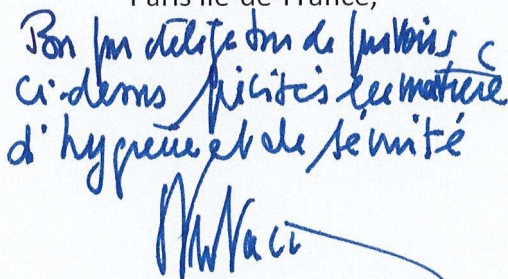 Paris Ile-de-France,
Bon pour délégation de pouvoirs
ci-dessus précisés en matière
d'hygiène et de sécurité